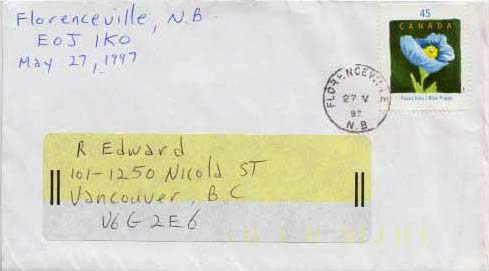 Florenceville, N.B
E0J 1K0
May 27, 1997
45
CANADA
FLORENCEVILLE
27 V
97
N.B
R Edward
101-1250 Nicola ST
Vancouver, B.C
V6G 2E6